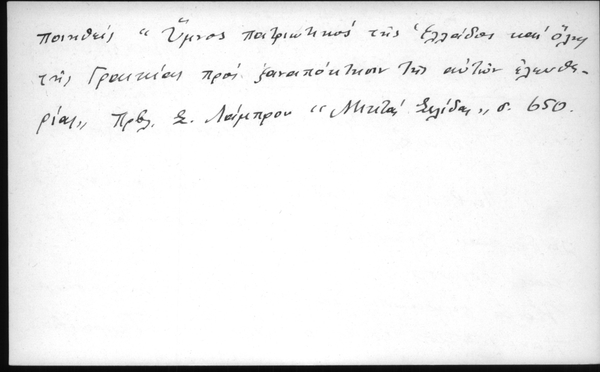 ποιηθείς “ Ὕμνος πατριωτικός τῆς Ἑλλάδος καί ὅλης
τῆς Γραικίας πρός ξαναπόκτησιν τῆς αὐτῶν ἐλευθε-
ρίας„ Πρβλ. Σ. Λάμπρου “ Μικταί Σελίδες „ σ. 650.